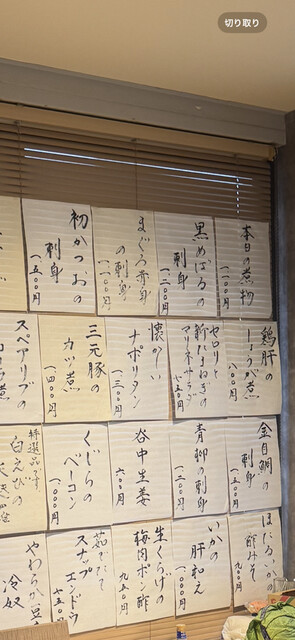 切り取り
本日の煮物
一一〇〇円
黒めばるの
刺身
一二〇〇円
まぐろ赤身
の刺身
一一〇〇円
初かつおの
刺身
一五〇〇円
鶏肝の
しょうが煮
八〇〇円
セロリと
新たまねぎの
マリネサラダ
懐かしい
ナポリタン
一三〇〇円
三元豚の
カツ煮
一四〇〇円
スペアリブの
金目鯛の
刺身
一五〇〇円
青柳の刺身
一二〇〇円
谷中生姜
六〇〇円
くじらの
ベーコン
一八〇〇円
特選品です
白えびの
ほたるいかの
酢みそ
九〇〇円
いかの
肝和え
九〇〇円
生くらげの
梅肉ポン酢
九五〇円
茹でたて
スナップエンドウ
七五〇円
やわらか豆
冷奴